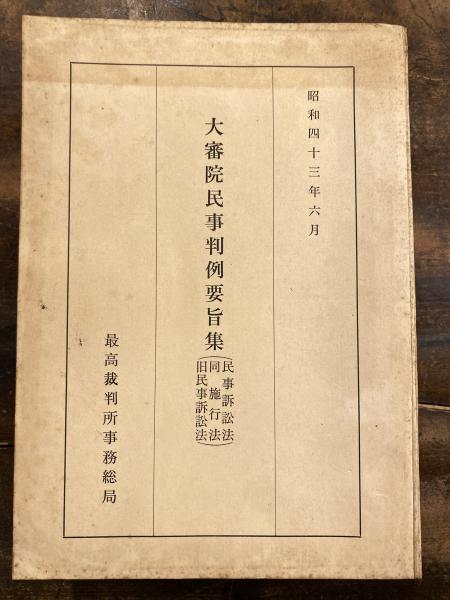 昭和四十三年六月
大審院民事判例要旨集
(民事訴訟法)
同施行法
(旧民事訴訟法)
最高裁判所事務総局